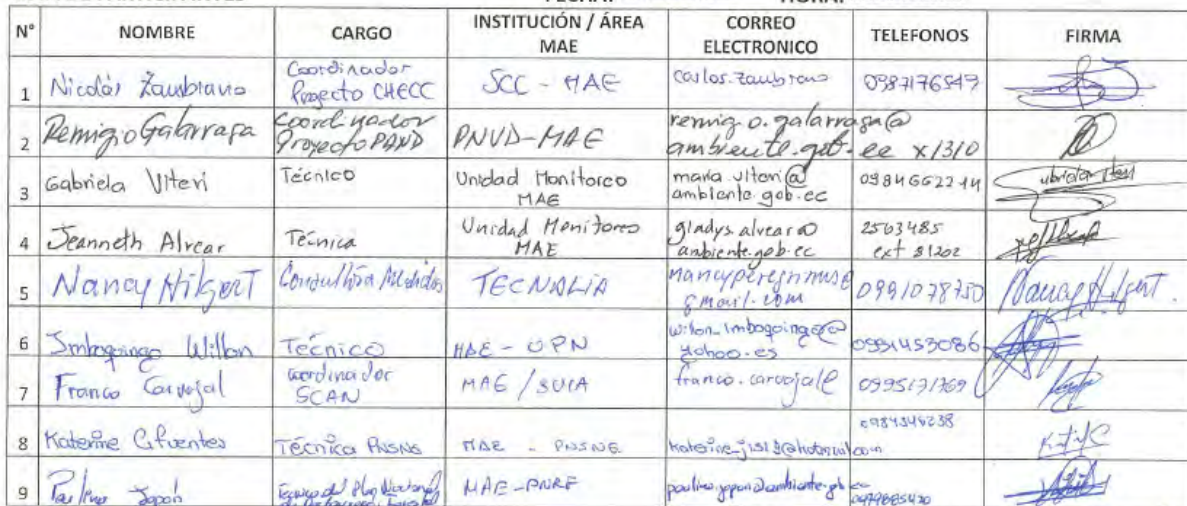 FECHA: HORA:
N° NOMBRE CARGO INSTITUCIÓN / ÁREA MAE CORREO ELECTRONICO TELEFONOS FIRMA
1 Nicolás Zambrano Coordinador Proyecto CHECC SCC - MAE carlos.zambrano 0987176549
2 Remigio Galarraga Coordinador Proyecto PAND PNVD-MAE remigio.galarraga@ambiente.gob.ee x1310
3 Gabriela Viteri Técnico Unidad Monitoreo MAE maria.viteri@ambiente.gob.ec 0984662244
4 Jeanneth Alvear Técnica Unidad Monitoreo MAE gladys.alvear@ambiente.gob.ec 2563485 ext 21202
5 Nancy Hilgert TECNALIA nancyperegrinus@gmail.com 0991078750 Nancy Hilgert
6 Imbaquingo Wilson Técnico MAE - 0991453086 yahoo.es
7 Franco Carvajal Coordinador SCAN MAE / SUIA franco.carvajal@ 0995171769
8 Katerine Cifuentes Técnica PNSNS MAE - 0984346238
9 Paulina Japón Técnico del Plan Nacional MAE-PNRF